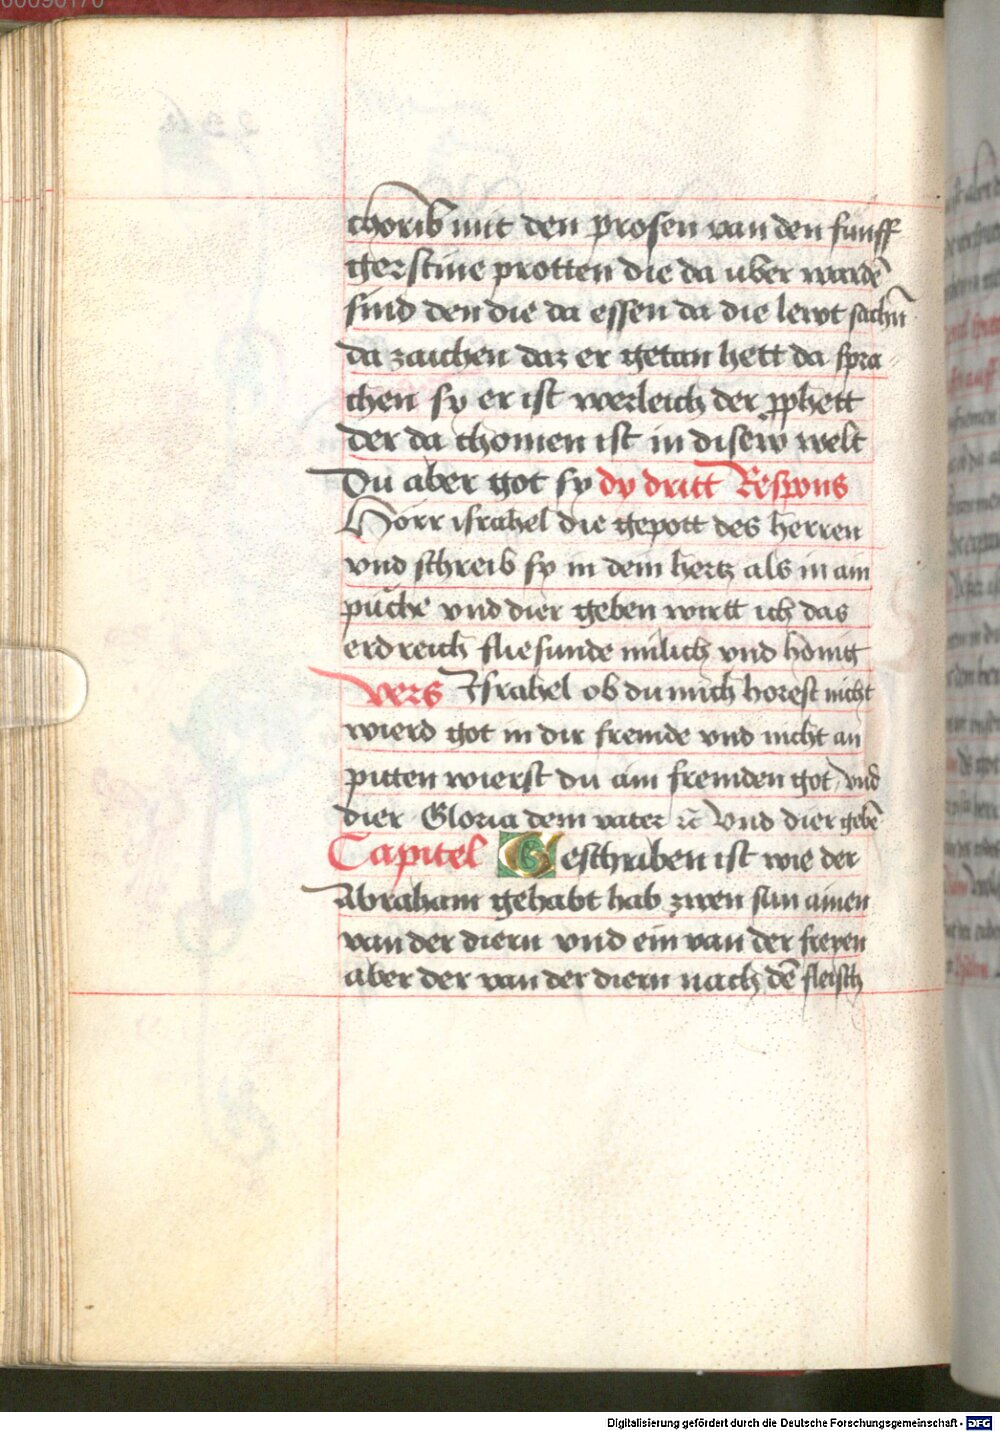 chorib mit den prosen van den funff
gerstine protten die da uber wardē
sind den die da essen da die lewt sachn̄
da zaichen daz er getan hett da spra
chen sy er ist werleich der pphett
der da chomen ist in disew welt
Du aber got sy dy dritt Respons
Horr israhel die gepott des herren
vnd schreib sy in dem hertz als in ain
puche vnd dier geben wirtt ich das
erdreich fliesunde milich vnd honig
Vers Israhel ob du mich horest nicht
wierd got in dir fremde vnd nicht an
pitten wierst du ain fremden got vnd
dier Gloria dem vater ꝛc Vnd dier gebē
Capitel Geschriben ist wie der
Abraham gehabt hab zwen sun ainen
van der diern vnd ein van der freyen
aber der van der diern nach dē fleisch
Digitalisierung gefördert durch die Deutsche Forschungsgemeinschaft - DFG